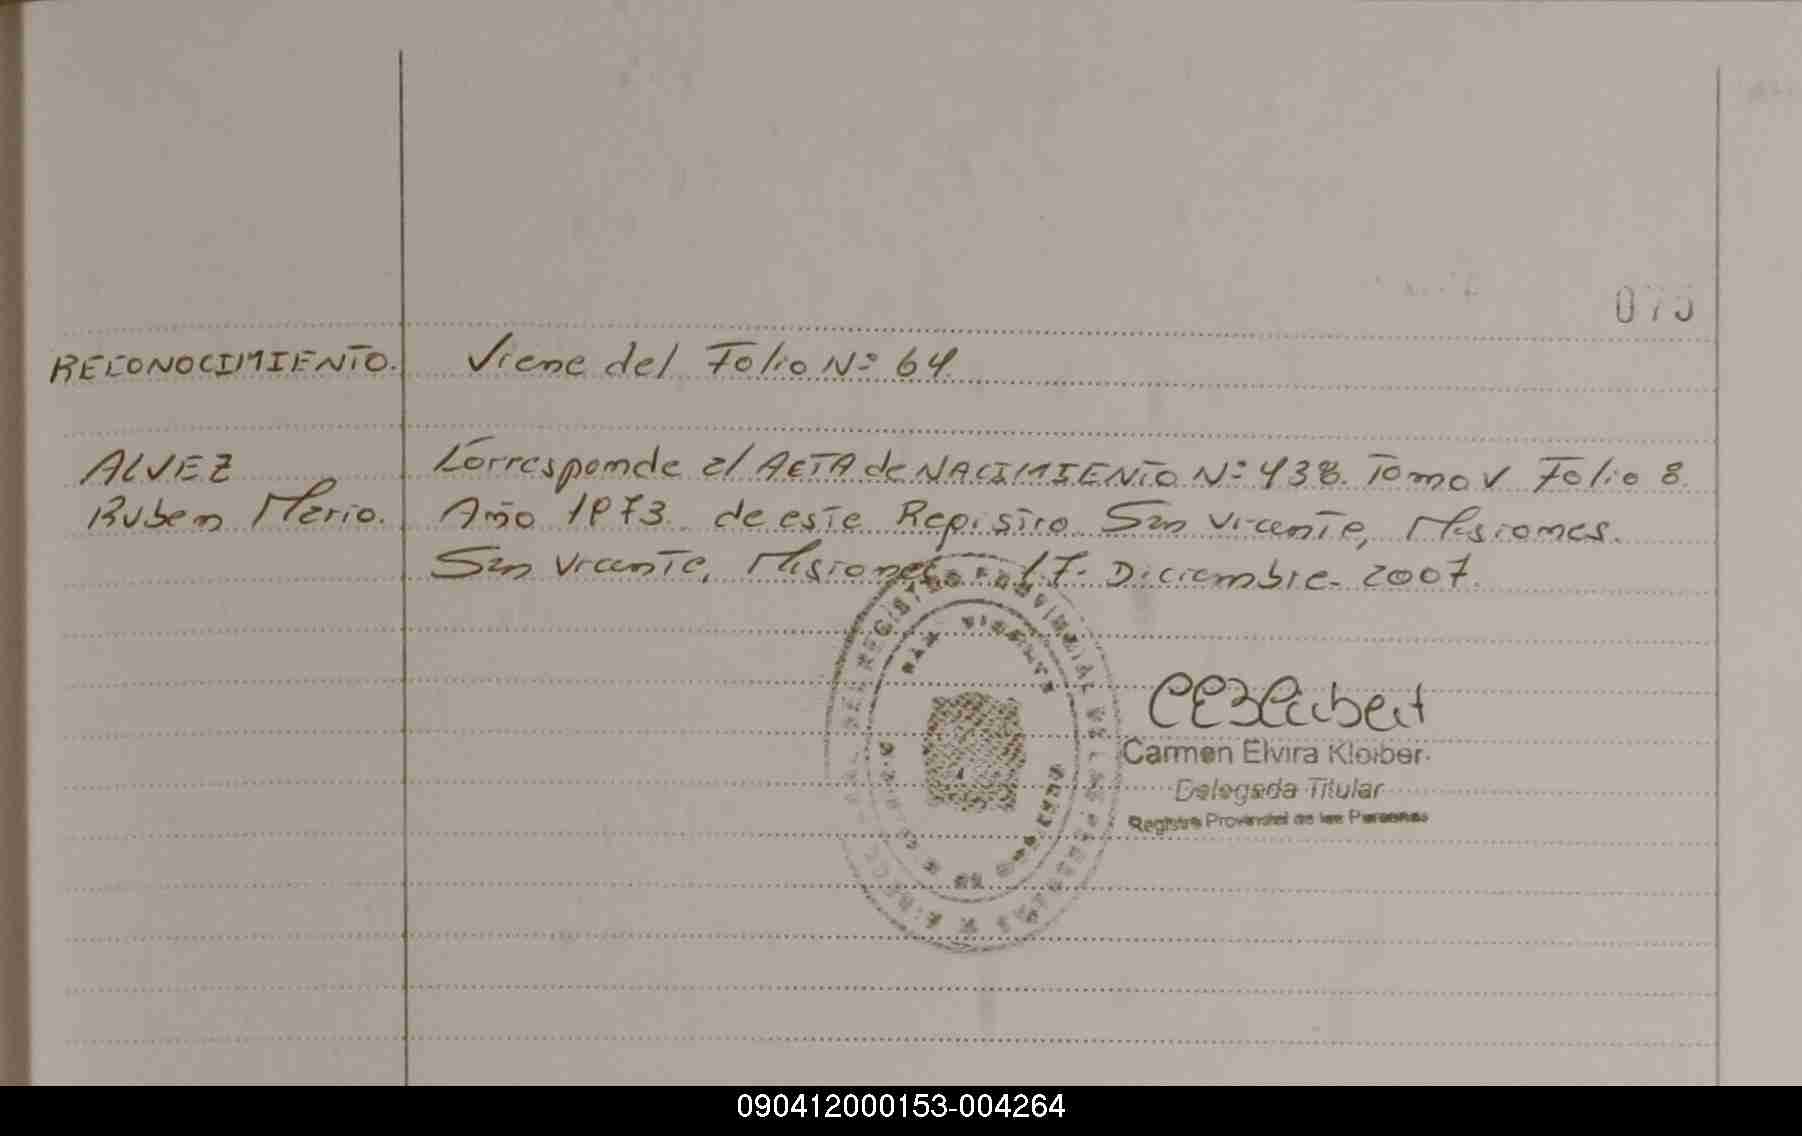 075
RECONOCIMIENTO. Viene del Folio Nº 64.
ALVEZ Corresponde al ACTA de NACIMIENTO Nº 438. Tomo V Folio 8.
Ruben Mario. Año 1973. de este Registro San Vicente, Misiones.
San Vicente, Misiones. 17. Diciembre. 2007.
REGISTRO PROVINCIAL DE LAS PERSONAS
SAN VICENTE
Carmen Elvira Kleiber
Delegada Titular
Registro Provincial de las Personas
090412000153-004264